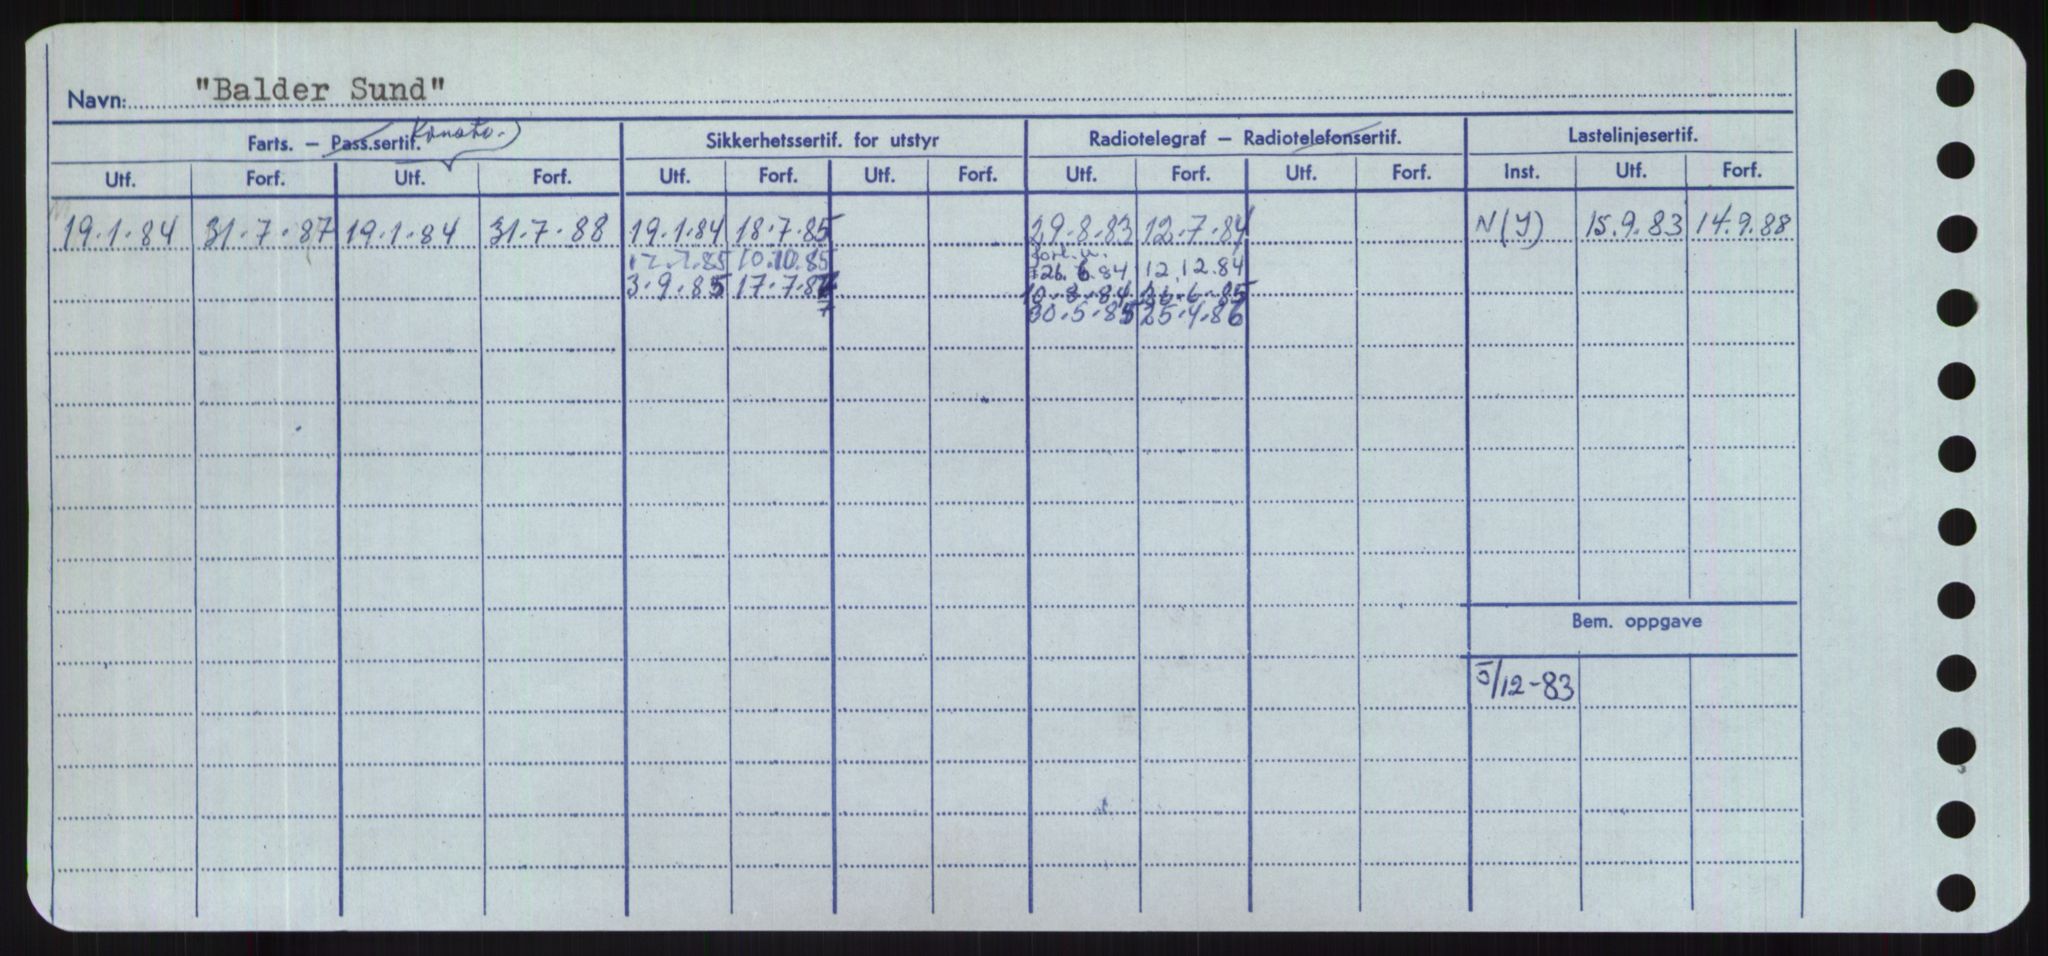 Navn: "Balder Sund"
Farts. — Pass.sertif. Konstr. Sikkerhetssertif. for utstyr Radiotelegraf — Radiotelefonsertif. Lastelinjesertif.
Utf. Forf. Utf. Forf. Utf. Forf. Utf. Forf. Utf. Forf. Utf. Forf. Inst. Utf. Forf.
19.1.84 31.7.87 19.1.84 31.7.88 19.1.84 18.7.85 29.8.83 12.7.84 N(Y) 15.9.83 14.9.88
.7.85 10.10.85 26.6.84 12.12.84
3.9.85 17.7.87 10.8.84 26.6.85
7 30.5.85 25.4.86
Bem. oppgave
5/12-83